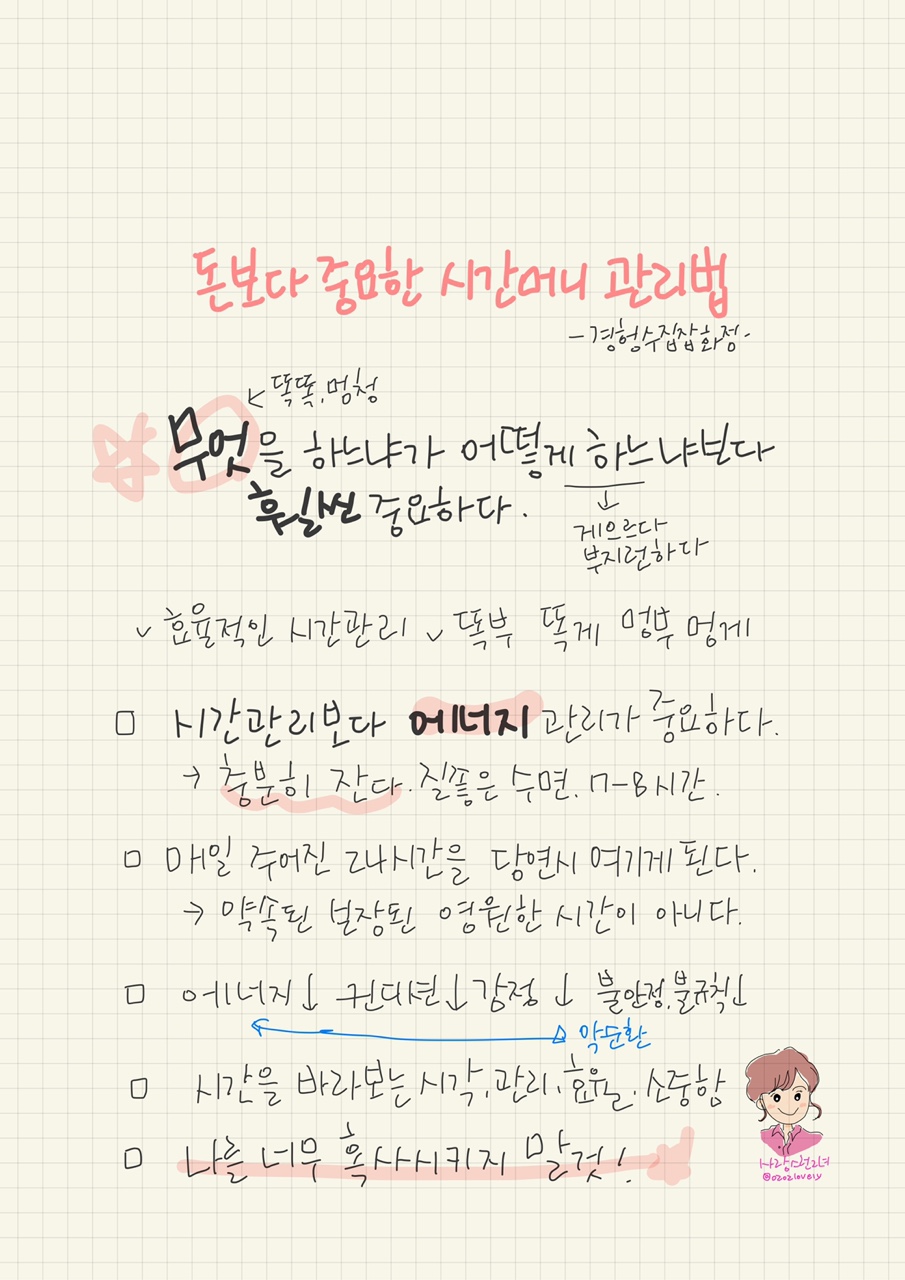 돈보다 중요한 시간머니 관리법
-경험수집잡화점-
똑똑, 멍청
무엇을 하느냐가 어떻게 하느냐보다
훨씬 중요하다.
↓
게으르다
부지런하다
✓ 효율적인 시간관리 ✓ 똑부 똑게 멍부 멍게
□ 시간관리보다 에너지 관리가 중요하다.
→ 충분히 잔다. 질좋은 수면. 7-8시간.
□ 매일 주어진 24시간을 당연시 여기게 된다.
→ 약속된 보장된 영원한 시간이 아니다.
□ 에너지↓ 컨대션↓ 감정↓ 불안정, 불규칙↓
악순환
□ 시간을 바라보는 시각, 관리, 효율, 소중함
□ 나를 너무 혹사시키지 말것!
@0202lovely